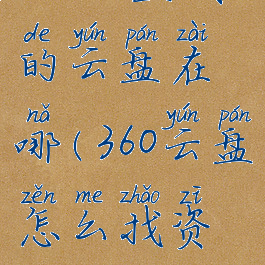 de yún pán zài
的云盘在
nǎ yún pán
哪(360云盘
zěn me zhǎo zī
怎么找资